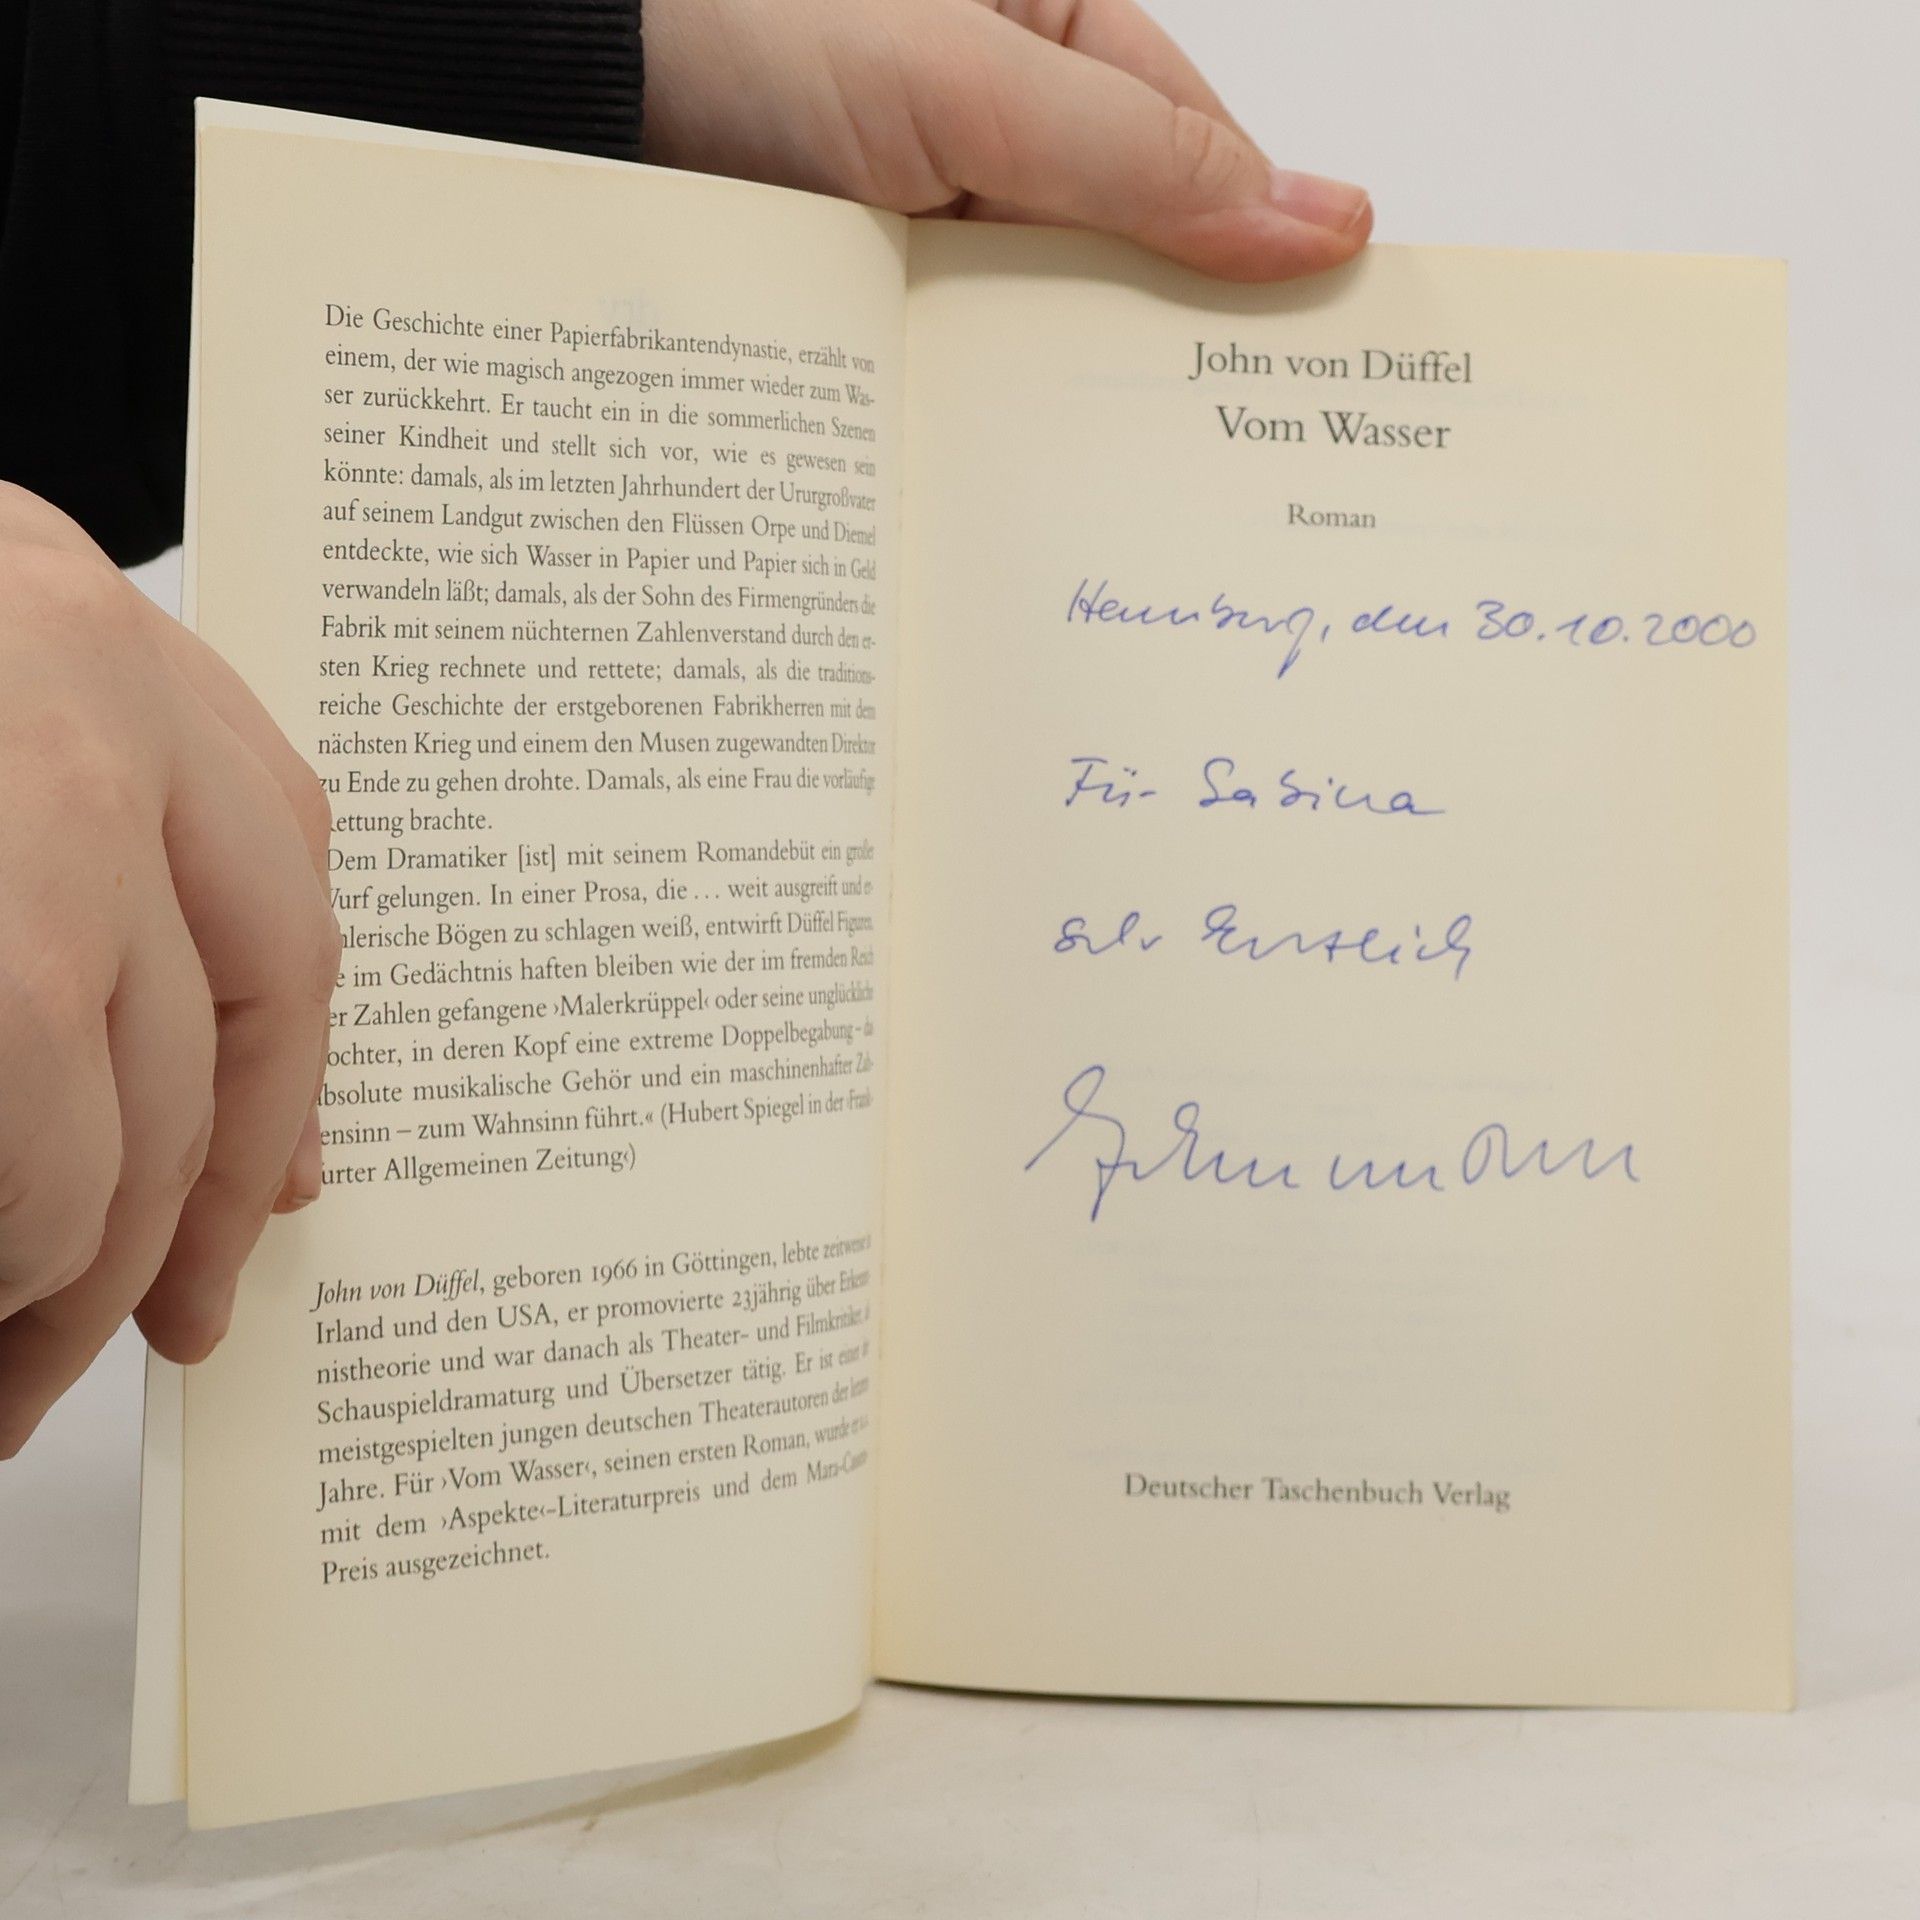 Die Geschichte einer Papierfabrikantendynastie, erzählt von
einem, der wie magisch angezogen immer wieder zum Was-
ser zurückkehrt. Er taucht ein in die sommerlichen Szenen
seiner Kindheit und stellt sich vor, wie es gewesen sein
könnte: damals, als im letzten Jahrhundert der Ururgroßvater
auf seinem Landgut zwischen den Flüssen Orpe und Diemel
entdeckte, wie sich Wasser in Papier und Papier sich in Geld
verwandeln läßt; damals, als der Sohn des Firmengründers die
Fabrik mit seinem nüchternen Zahlenverstand durch den er-
sten Krieg rechnete und rettete; damals, als die traditions-
reiche Geschichte der erstgeborenen Fabrikherren mit dem
nächsten Krieg und einem den Musen zugewandten Direktor
zu Ende zu gehen drohte. Damals, als eine Frau die vorläufige
ettung brachte.
Dem Dramatiker [ist] mit seinem Romandebüt ein großer
urf gelungen. In einer Prosa, die ... weit ausgreift und er-
hlerische Bögen zu schlagen weiß, entwirft Düffel Figuren,
e im Gedächtnis haften bleiben wie der im fremden Reich
er Zahlen gefangene ›Malerkrüppel‹ oder seine unglückliche
ochter, in deren Kopf eine extreme Doppelbegabung – das
bsolute musikalische Gehör und ein maschinenhafter Zah-
ensinn – zum Wahnsinn führt.« (Hubert Spiegel in der ›Frank-
urter Allgemeinen Zeitung‹)
John von Düffel, geboren 1966 in Göttingen, lebte zeitweise in
Irland und den USA, er promovierte 23jährig über Erkennt-
nistheorie und war danach als Theater- und Filmkritiker, als
Schauspieldramaturg und Übersetzer tätig. Er ist einer der
meistgespielten jungen deutschen Theaterautoren der letzten
Jahre. Für ›Vom Wasser‹, seinen ersten Roman, wurde er u.a.
mit dem ›Aspekte‹-Literaturpreis und dem Mara-Cassens-
Preis ausgezeichnet.
John von Düffel
Vom Wasser
Roman
Hamburg, den 30.10.2000
Für Sabina
sehr herzlich
Deutscher Taschenbuch Verlag